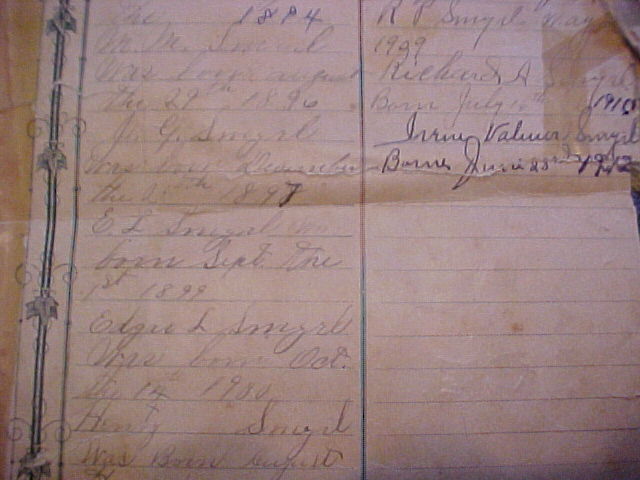 the 1894
M. M. Smyrl
Was born august
the 29th 1896
J. G. Smyrl
Was born December
the 1897
E L Smyrl
born Sept. the
1st 1899
Edgar L Smyrl
Was born Oct.
the 14 1900
Henry Smyrl
Was Born August
R P Smyrl May
1909
Richard A Smyrl
Born July 1910
Irene Smyrl
Borne June 1912